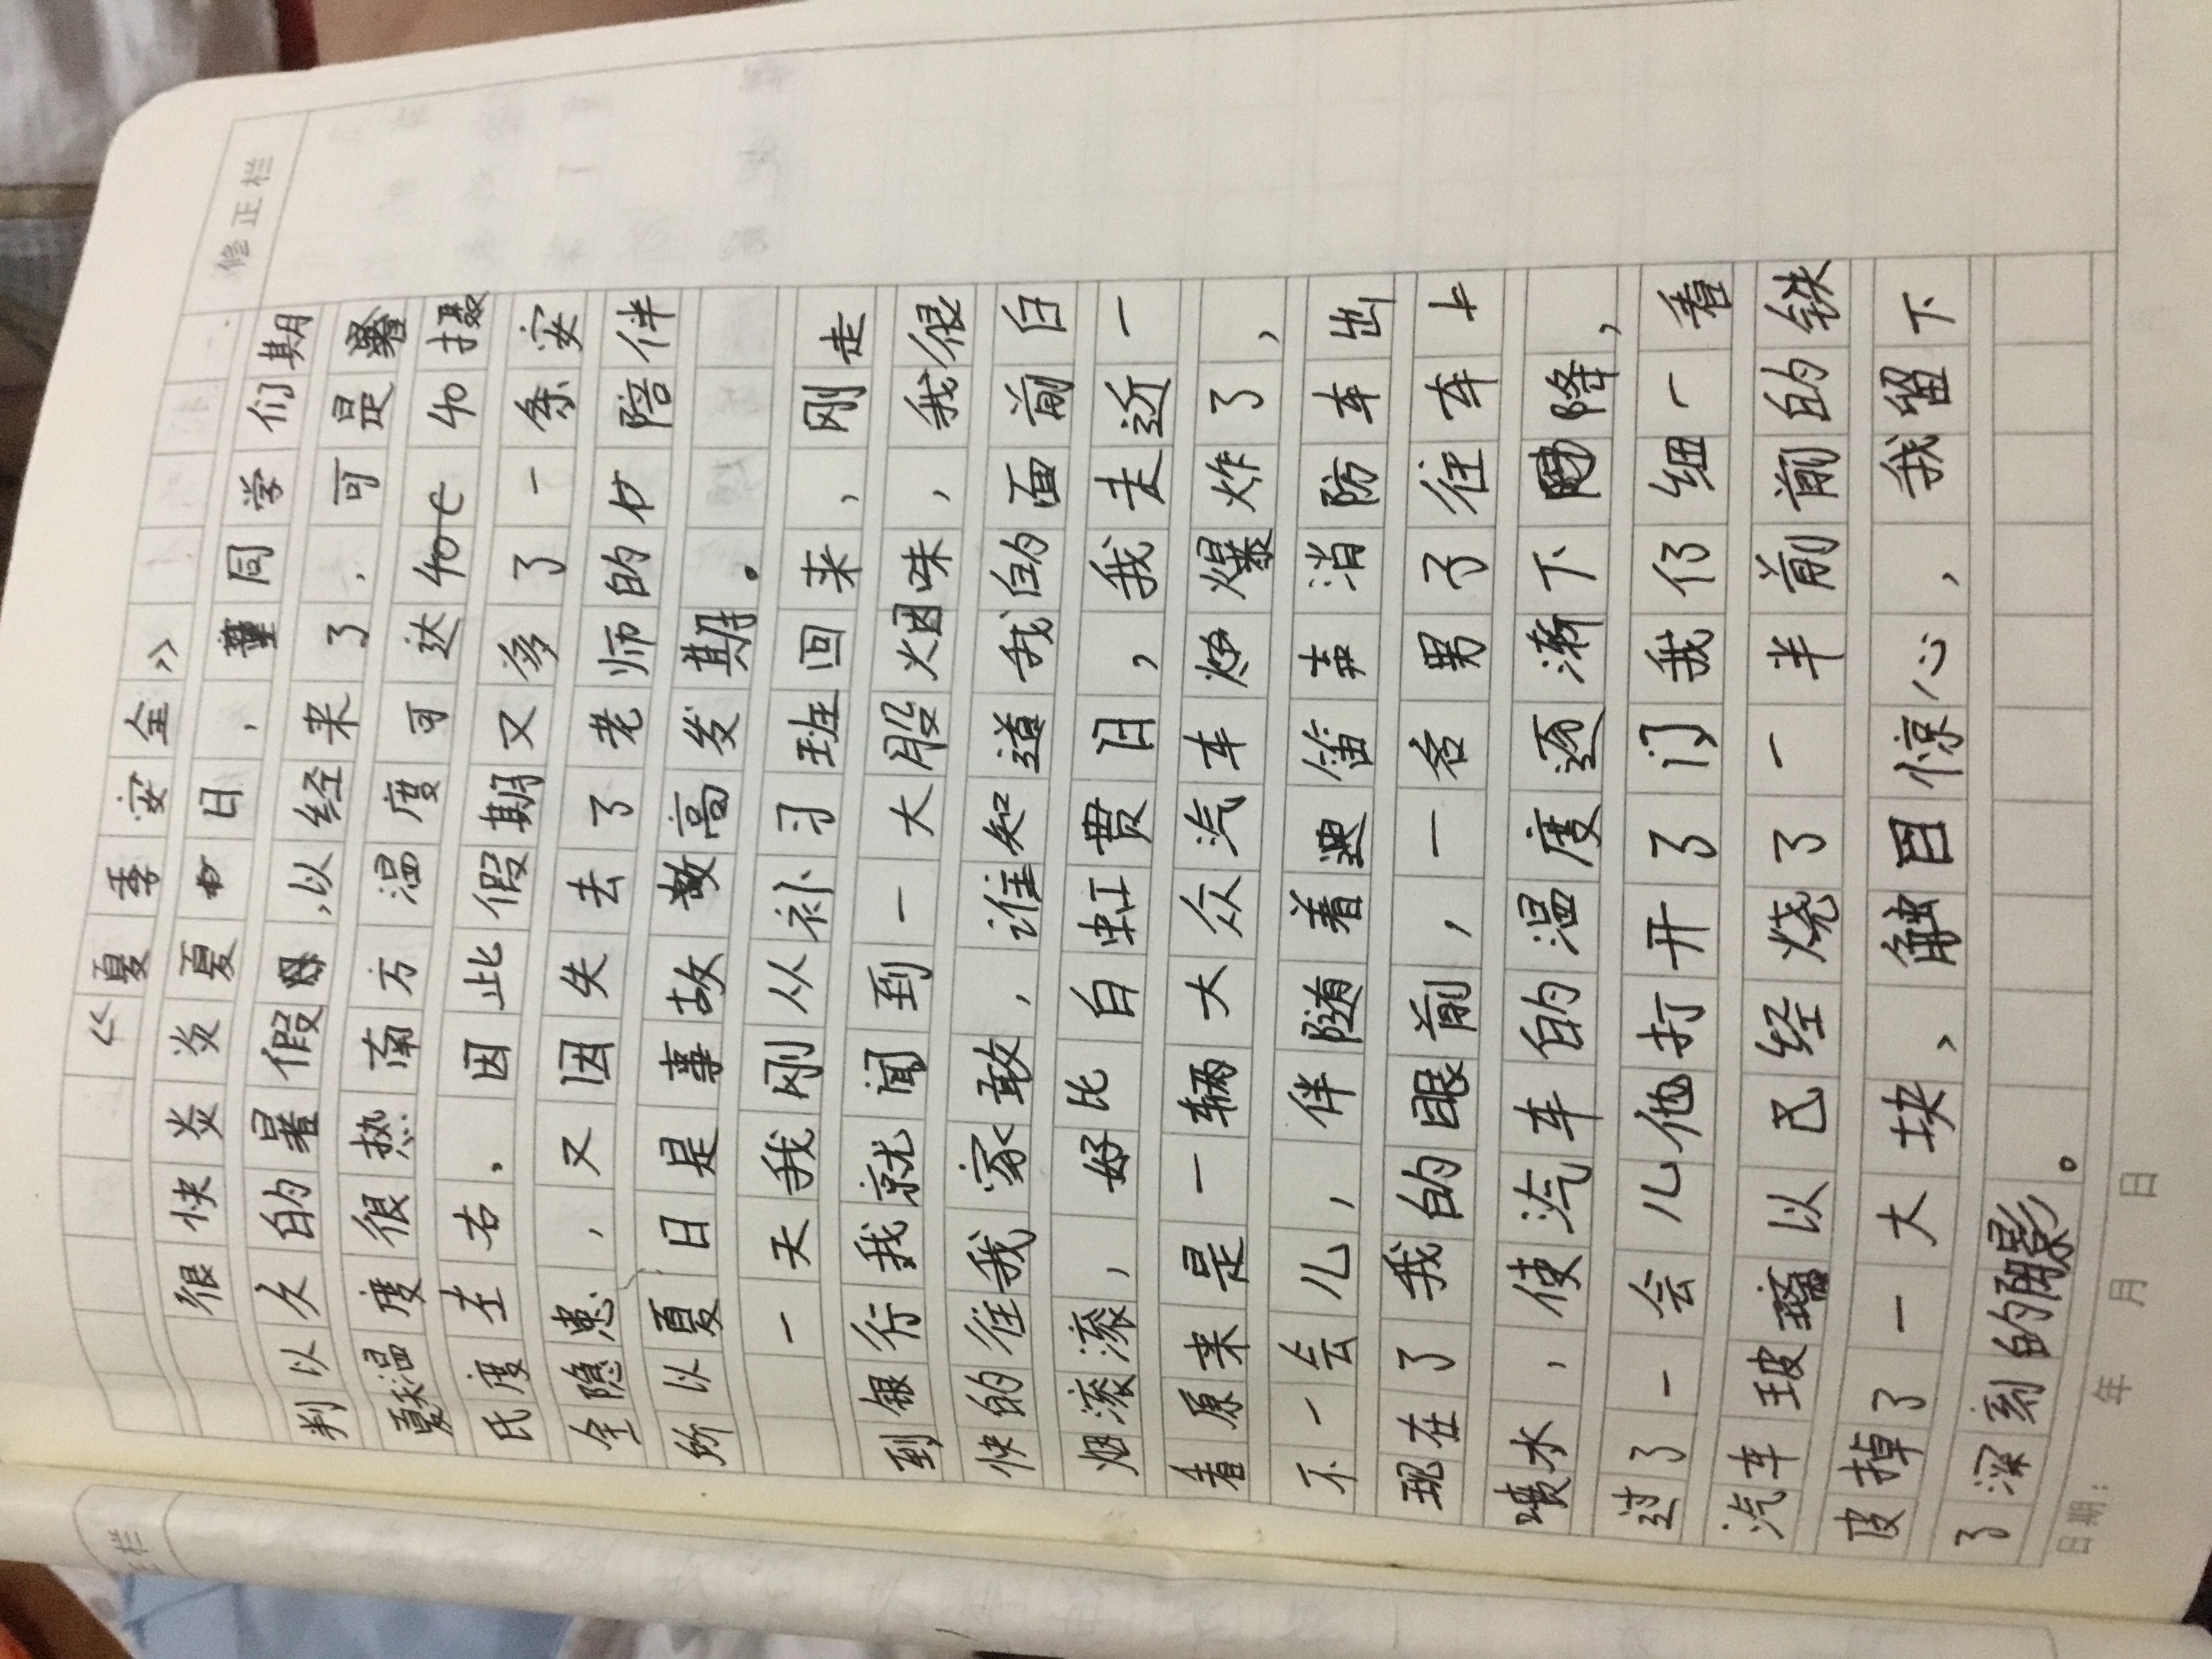 修正栏
《夏季安全》
很快炎炎夏日，董同学们期
判以久的暑假，以经来了，可是
温度很热南方温度可达40摄
氏度左右，因此假期又多了一条安
全隐患，又因失去了老师的付陪伴
所以夏日是事故高发期。
一天我刚从补习班回来，刚走
到银行我就闻到一大股烟味，我很
快的往我家敢，谁知道我的面前白
烟滚滚，好比白虹贯日，我走近一
看原来是一辆大众汽车爆炸了，
不一会儿，伴随着笛声消防车出
现在了我的眼前，一名男子往车上
喷水，使汽车的温度逐渐下降，
过了一会儿他打开了门我仔细一看
汽车玻璃以己经烧了一半前前的铁
皮掉了一大块，触目惊心，我留下
了深刻的阴影。
日期： 年 月 日